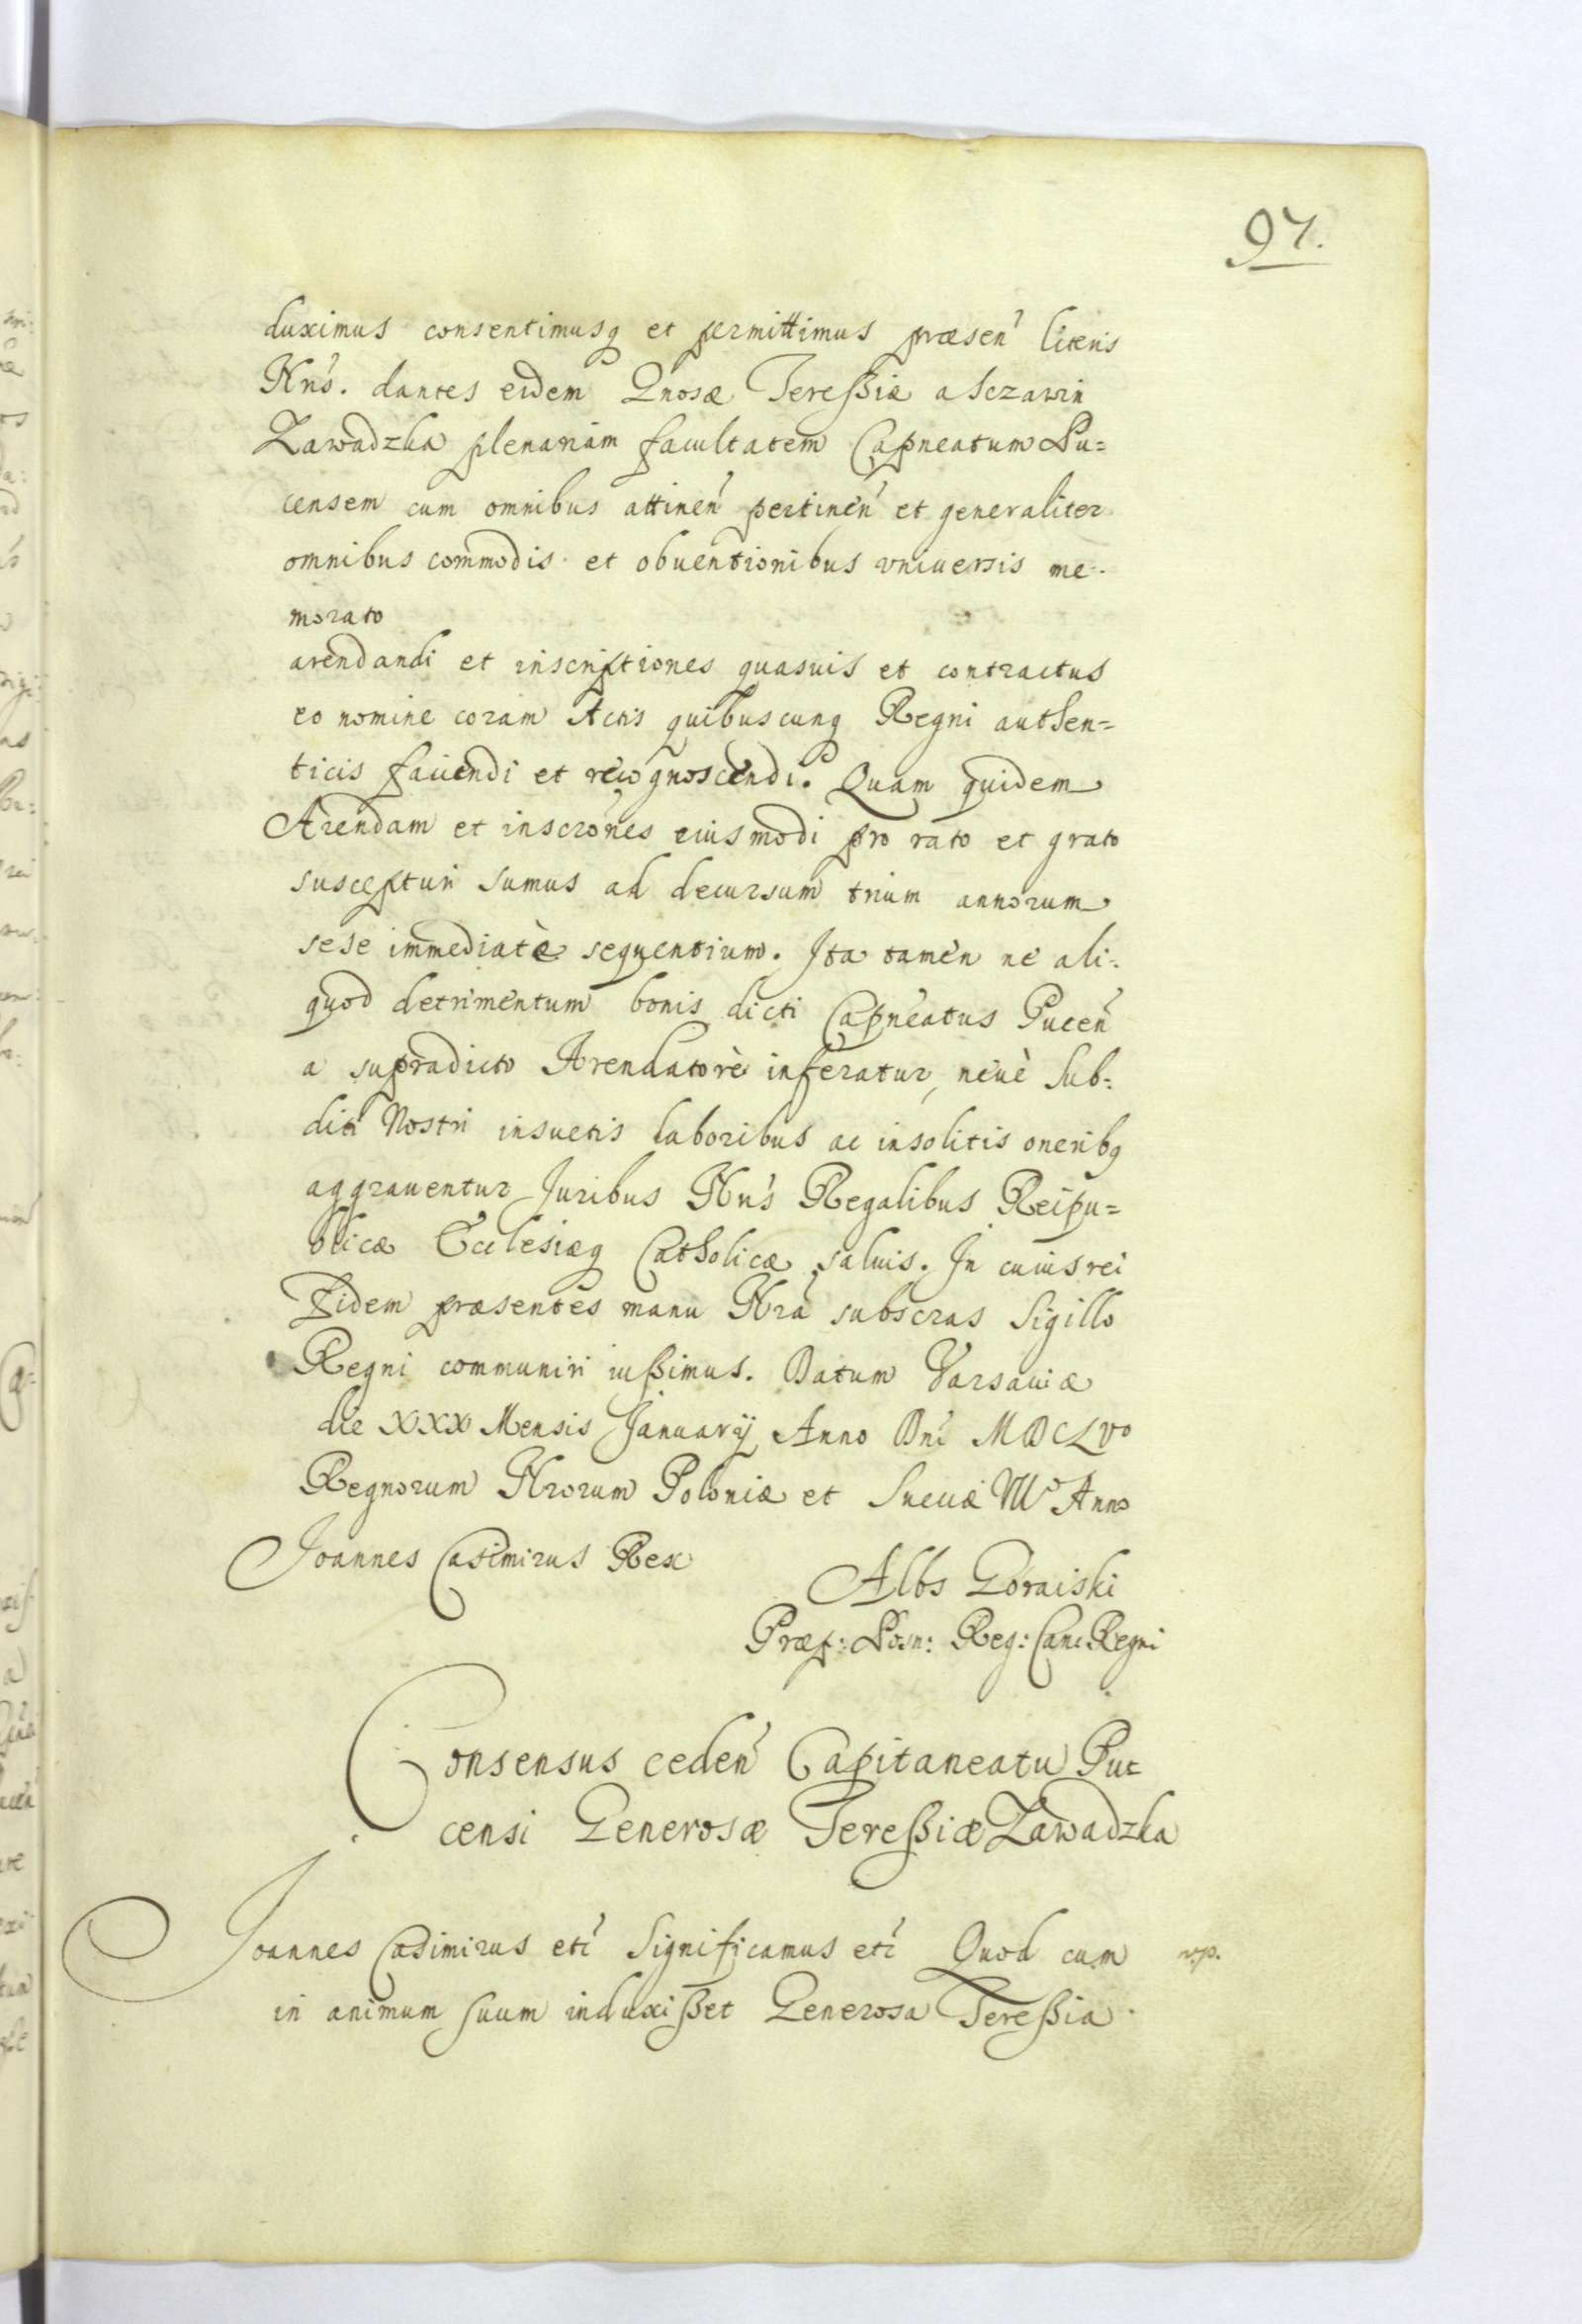 97.
duximus consentimusq et permittimus præsen̄ literis
Nr̄is. dantes eidem Gnosæ Tereßiæ a Sczawin
Zawadzka plenariam facultatem Capneatum Pu=
censem cum omnibus attinen̄ pertinen̄ et generaliter
omnibus commodis et obuentionibus vniuersis me-
morato
arendandi et inscriptiones quasuis et contractus
eo nomine coram Actis quibuscunq Regni authen=
ticis faciendi et recognoscendi. Quam quidem
Arendam et inscrōnes eiusmodi pro rato et grato
suscepturi sumus ad decursum trium annorum
sese immediatè sequentium. Ita tamen ne ali-
quod detrimentum bonis dicti Capneatus Pucen̄
a supradicto Arendatorè inferatur, neuè Sub-
diti Nostri insuetis laboribus ac insolitis oneribq
aggrauentur Juribus Nr̄is Regalibus Reipu=
blicæ Ecclesiæq Catholicæ saluis. In cuius rei
Fidem præsentes manu Nr̄a subscras Sigillo
Regni communiri iußimus. Datum Varsauiæ
die XXX Mensis Januarij Anno Dni MDCLVo
Regnorum Nrorum Poloniæ et Sueciæ VIIo Anno
Joannes Casimirus Rex
Albs Goraiski
Præp: Posn: Reg: Canc Regni
Consensus ceden̄ Capitaneatu Puc
censi Generosæ Tereßiæ Zawadzka
Joannes Casimirus etc̄ Significamus etc̄ Quod cum
in animum suum induxißet Generosa Tereßia